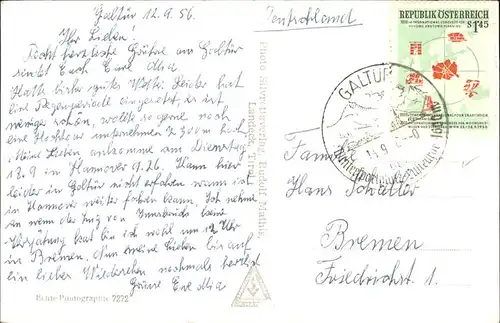 Galtür 12.9.56.
Ihr Lieben!
Recht herzliche Grüsse aus Galtür
sendet Euch Eure Mia
Hatte bisher gutes Wetter. Leider hat
eine Regenperiode eingesetzt, es ist
weniger schön, wollte so gerne noch
eine Hochtour unternehmen 3300m hoch.
Meine Lieben ankomme am Dienstag
18.9 in Hannover 9.26. Kann hier
leider in Galtür nicht erfahren wann ich
in Hannover weiter fahren kann. Ich nehme
an wenn der Zug von Innsbruck keine
Verspätung hat bin ich wohl um 12 Uhr
in Bremen. Nun meine Lieben bis auf
ein lieber Wiedersehen nochmals herzlich
Grüsse Eure Mia
Echte Photographie 7872
Photo Silvrettaverlag Rudolf Mathis,
Deutschland
REPUBLIK ÖSTERREICH
S 1.45
GALTÜR
14.9.
Familie
Hans
Bremen
Friedrichst. 1.